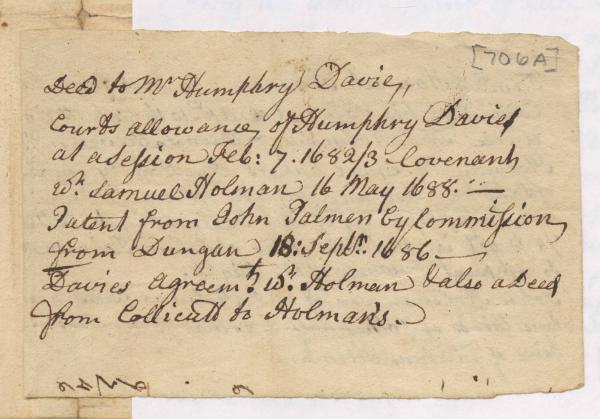 [706A]
Deed to Mr Humphry Davie,
Courts allowance, of Humphry Davies
at a Session Feb: 7. 1682/3 Covenant
wth. Samuel Holman 16 May 1688. —
Patent from John Palmer by Commission
from Dungan 18: Septr. 1686 —
Davies agreemt. wth. Holman & also a Deed
from Collicutt to Holman's.